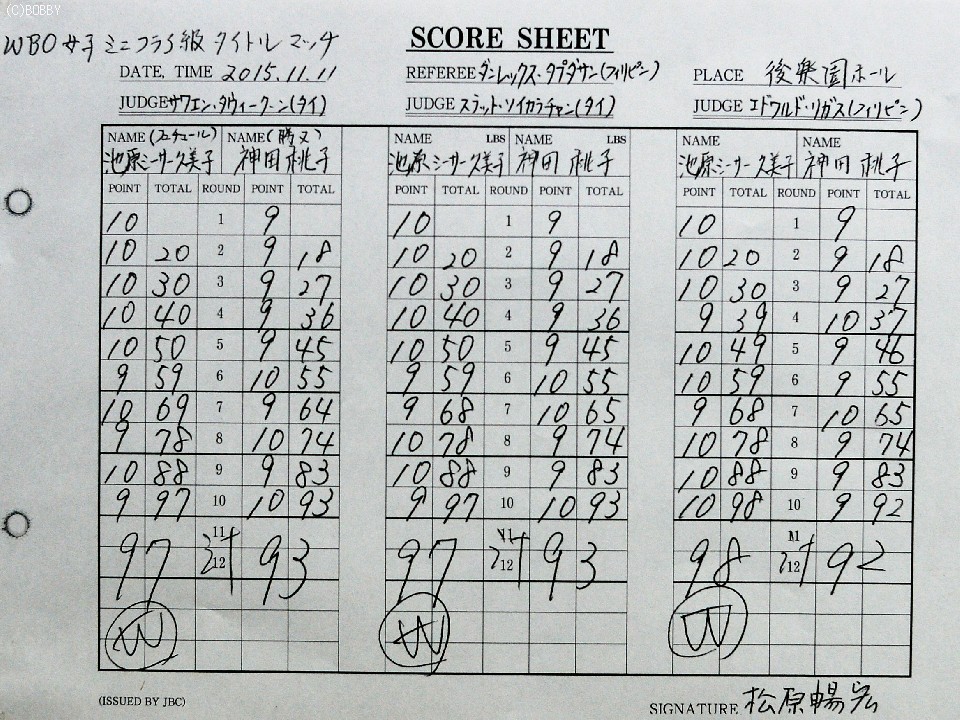 (C)BOBBY
WBO 女子 ミニフライ級 タイトルマッチ
SCORE SHEET
DATE, TIME 2015.11.11
REFEREE ダンレックス・タプダサン(フィリピン)
PLACE 後楽園ホール
JUDGE サワエン・タウィークーン(タイ)
JUDGE スラット・ソイカラチャン(タイ)
JUDGE エドワルド・リガス(フィリピン)
NAME (フュチュール) NAME (勝又) NAME LBS NAME LBS NAME NAME
池原シーサー久美子 神田桃子 池原シーサー久美子 神田桃子 池原シーサー久美子 神田桃子
POINT TOTAL ROUND POINT TOTAL POINT TOTAL ROUND POINT TOTAL POINT TOTAL ROUND POINT TOTAL
10 1 9 10 1 9 10 1 9
10 20 2 9 18 10 20 2 9 18 10 20 2 9 18
10 30 3 9 27 10 30 3 9 27 10 30 3 9 27
10 40 4 9 36 10 40 4 9 36 9 39 4 10 37
10 50 5 9 45 10 50 5 9 45 10 49 5 9 46
9 59 6 10 55 9 59 6 10 55 10 59 6 9 55
10 69 7 9 64 9 68 7 10 65 9 68 7 10 65
9 78 8 10 74 10 78 8 9 74 10 78 8 9 74
10 88 9 9 83 10 88 9 9 83 10 88 9 9 83
9 97 10 10 93 9 97 10 10 93 10 98 10 9 92
11 11 11
97 計 93 97 計 93 98 計 92
12 12 12
W W W
(ISSUED BY JBC)
SIGNATURE 松原暢宏